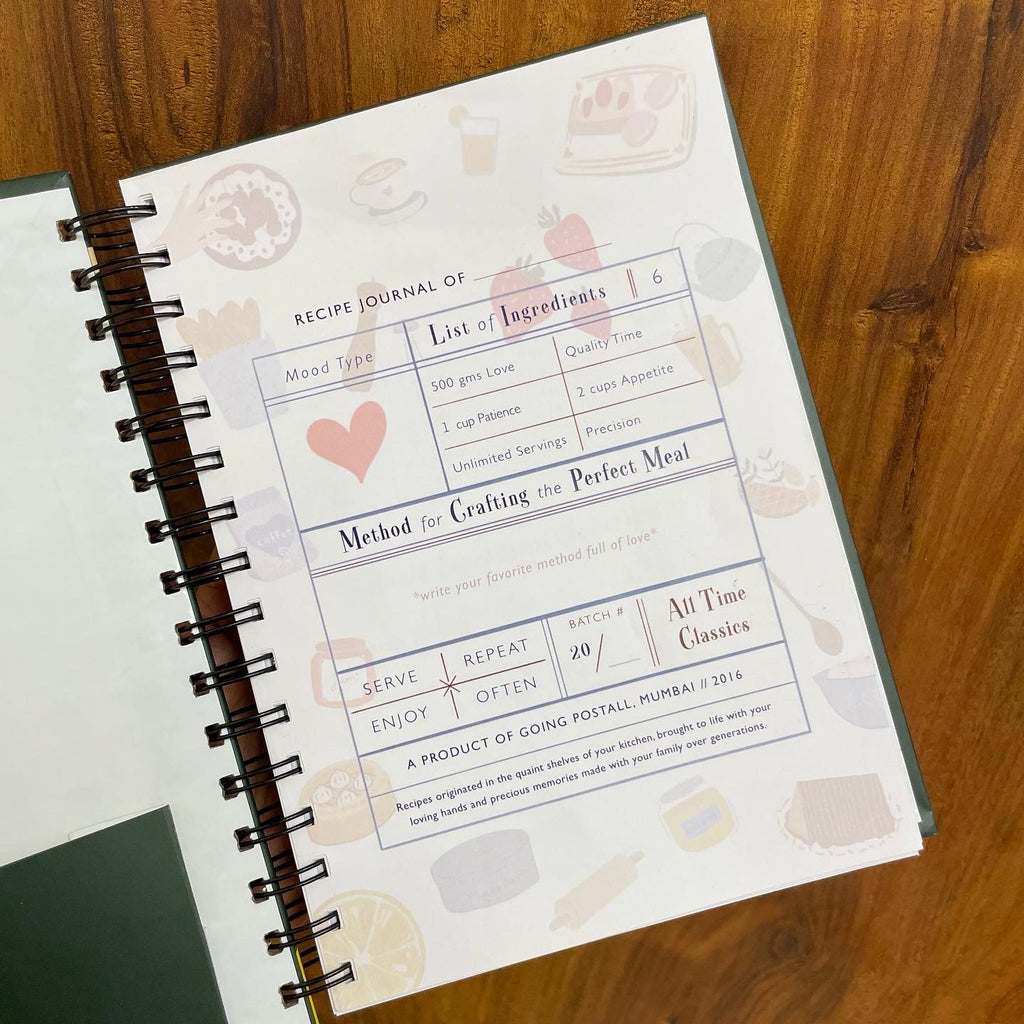 RECIPE JOURNAL OF
Mood Type
List of Ingredients 6
500 gms Love
Quality Time
1 cup Patience
2 cups Appetite
Unlimited Servings
Precision
Method for Crafting the Perfect Meal
*write your favorite method full of love*
SERVE
REPEAT
ENJOY
OFTEN
BATCH #
20/__
All Time
Classics
A PRODUCT OF GOING POSTALL, MUMBAI // 2016
Recipes originated in the quaint shelves of your kitchen, brought to life with your
loving hands and precious memories made with your family over generations.
coffee